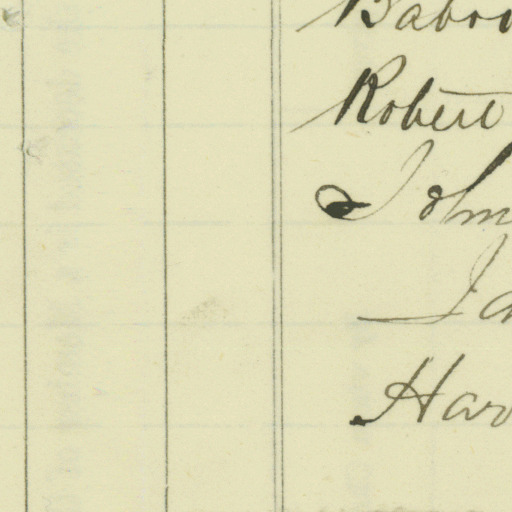 Babco
Robert
John
Ja
Har